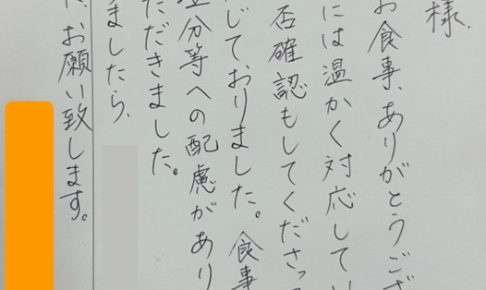 様
お食事、ありがとうござ
には温かく対応してい
否確認もしてくださっ
じておりました。食事
塩分等への配慮があり
ただきました。
ましたら、
お願い致します。